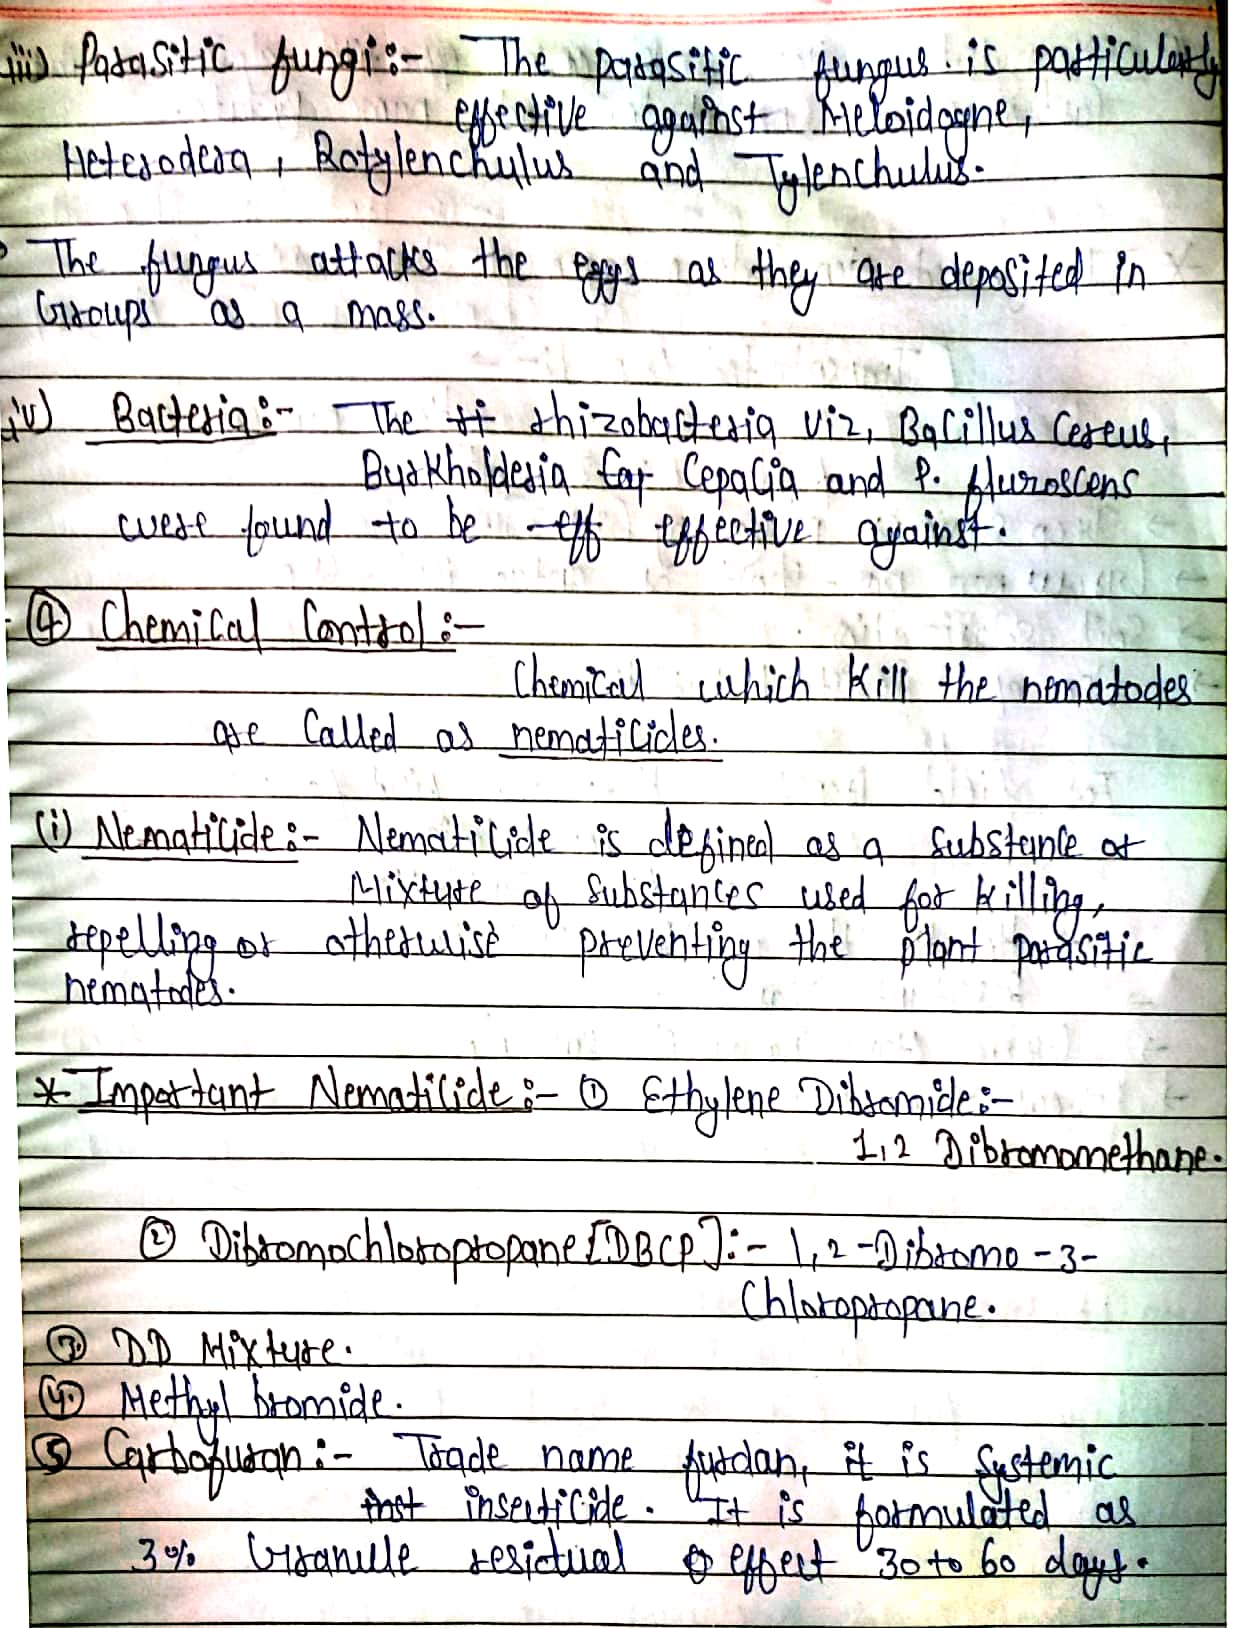 iii) Parasitic fungi:- The parasitic fungus is particularly
effective against Meloidogne,
Heterodera, Rotylenchulus and Tylenchulus.
The fungus attacks the eggs as they are deposited in
Groups as a mass.
iv) Bacteria:- The rhizobacteria viz, Bacillus Cereus,
Burkholderia Cepacia and P. fluroscens
were found to be effective against.
④ Chemical Control:-
Chemical which kill the nematodes
are Called as nematicides.
(i) Nematicide:- Nematicide is defined as a Substance or
Mixture of Substances used for killing,
repelling or otherwise preventing the plant parasitic
nematodes.
* Important Nematicide:- ① Ethylene Dibromide:-
1,2 Dibromomethane.
② Dibromochloropropane [DBCP]:- 1,2-Dibromo-3-
Chloropropane.
③ DD Mixture.
④ Methyl bromide.
⑤ Carbofuran:- Trade name furdan, it is Systemic
insecticide. It is formulated as
3% Granulle residual effect 30 to 60 days.